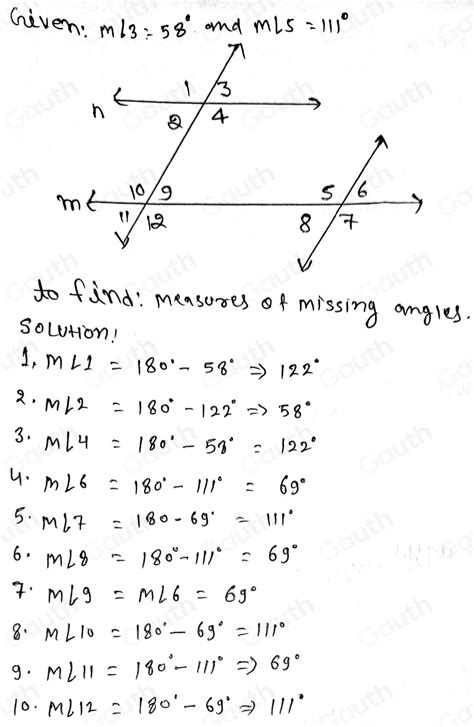 Given: m∠3 = 58° and m∠5 = 111°
1 3
n
2 4
10 9 5 6
m
11 12 8 7
to find: measures of missing angles.
SOLUTION!
1, m∠1 = 180° - 58° ⇒ 122°
2. m∠2 = 180° - 122° ⇒ 58°
3. m∠4 = 180° - 58° = 122°
4. m∠6 = 180° - 111° = 69°
5. m∠7 = 180 - 69° = 111°
6. m∠8 = 180° - 111° = 69°
7. m∠9 = m∠6 = 69°
8. m∠10 = 180° - 69° = 111°
9. m∠11 = 180° - 111° ⇒ 69°
10. m∠12 = 180° - 69° ⇒ 111°
Gauth